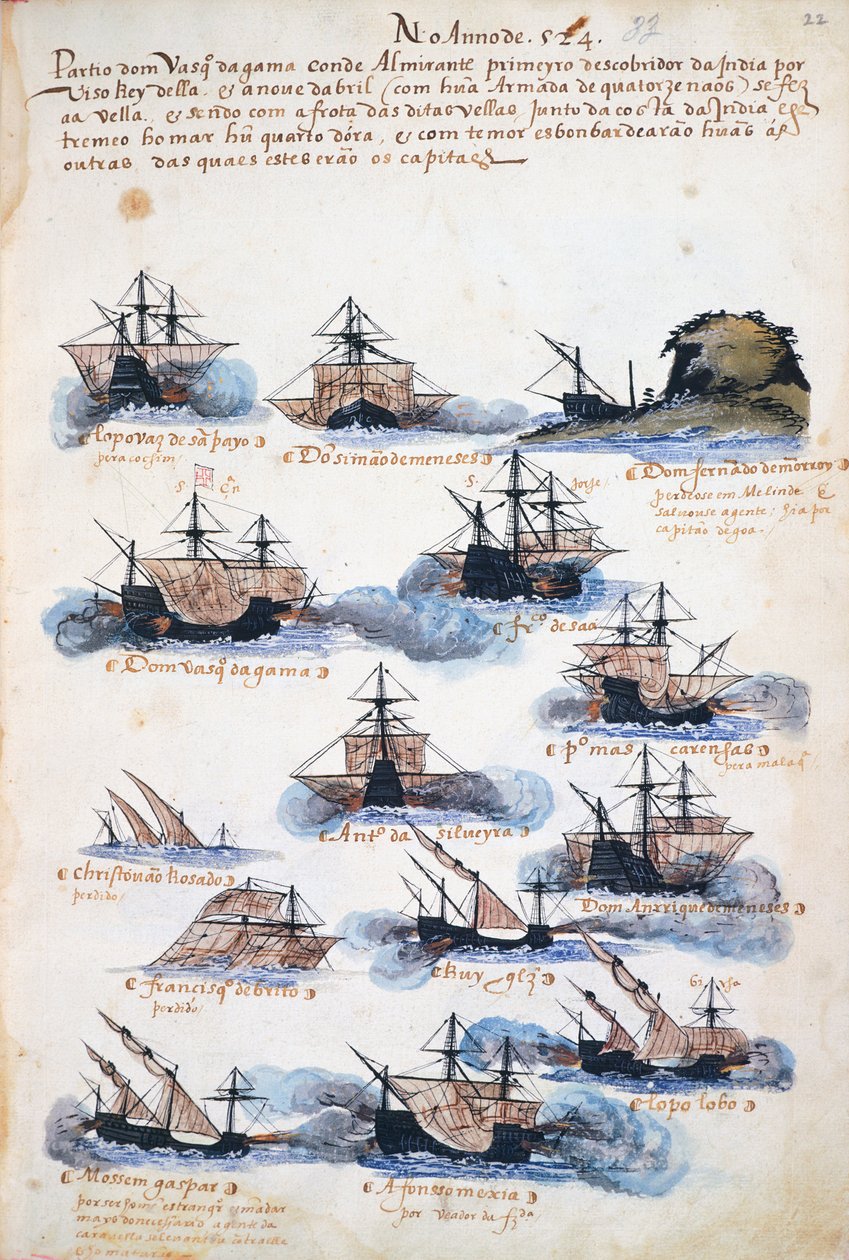 No Anno de . 524 .
22
22
Partio dom Vasqº dagama conde Almirante primeyro descobridor da India por
Viso Rey della . & a nove dabril (com hũa Armada de quatorze naos) se fez
aa vella . & sendo com a frota das ditas vellas, Junto da costa da India es
tremeo ho mar hũ quarto dóra , & com temor esbonbardearão hũas ás
outras das quaes estes erão os capitães
lopo vaz de sãpayo
pera cochim
Dō simão de meneses
Dom fernãdo de mõrroy
perdeose em Melinde &
salvouse a gente ; hia por
capitão de goa .
S. Cª n
Dom vasqº da gama
S. Jorje
frcº de saa
pº mas carenhas
pera malaqª
Antº da silveyra
christóvão Rosado
perdido
Dom Anrrique de meneses
francisqº de brito
perdido
Ruy glz
lopo lobo
Mossem gaspar
por ser home estrangrº & mãdar
mays do necessario a gente da
caravella se levantou cõtra elle
& ho matarão
Afonsso mexia
por veador da fzda